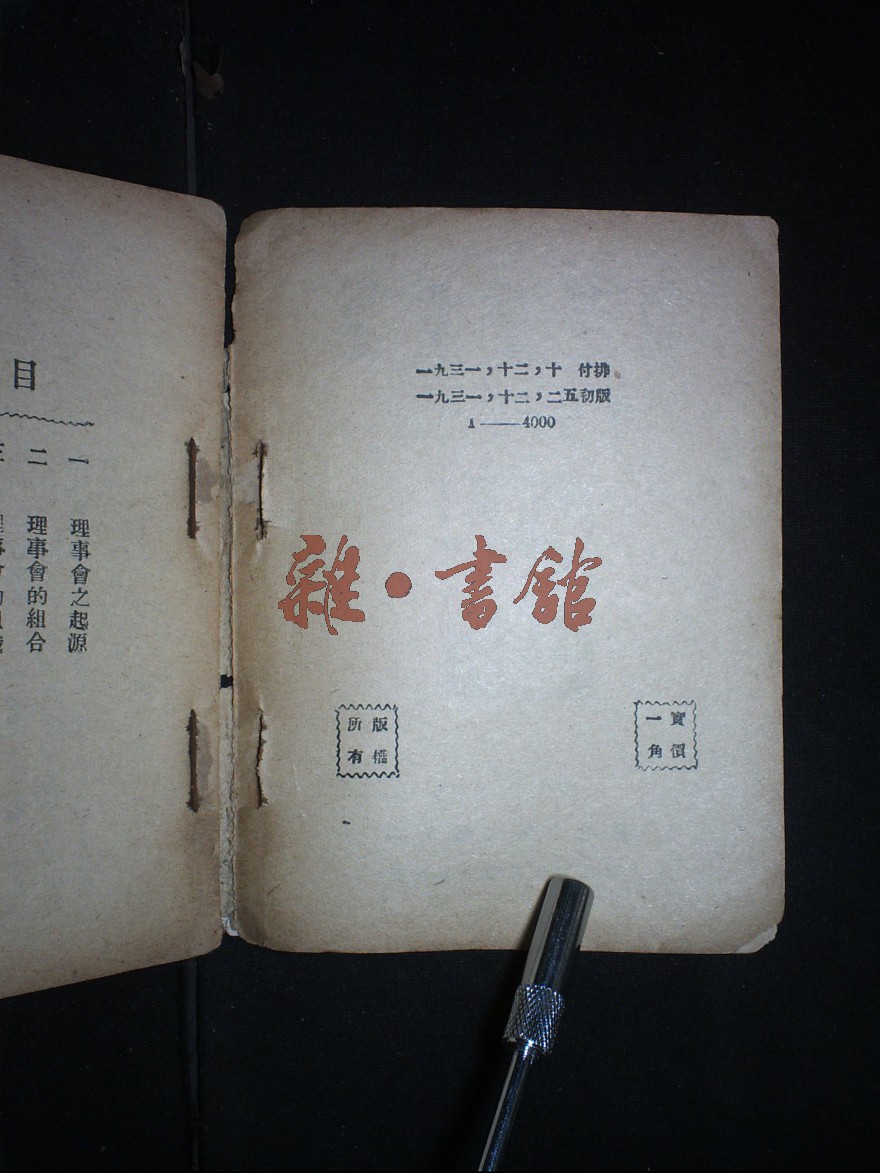 一九三一,十二,十 付排
一九三一,十二,二五初版
1——4000
雜·書舘
版權
所有
實價
一角
目
一 理事會之起源
二 理事會的組合
三